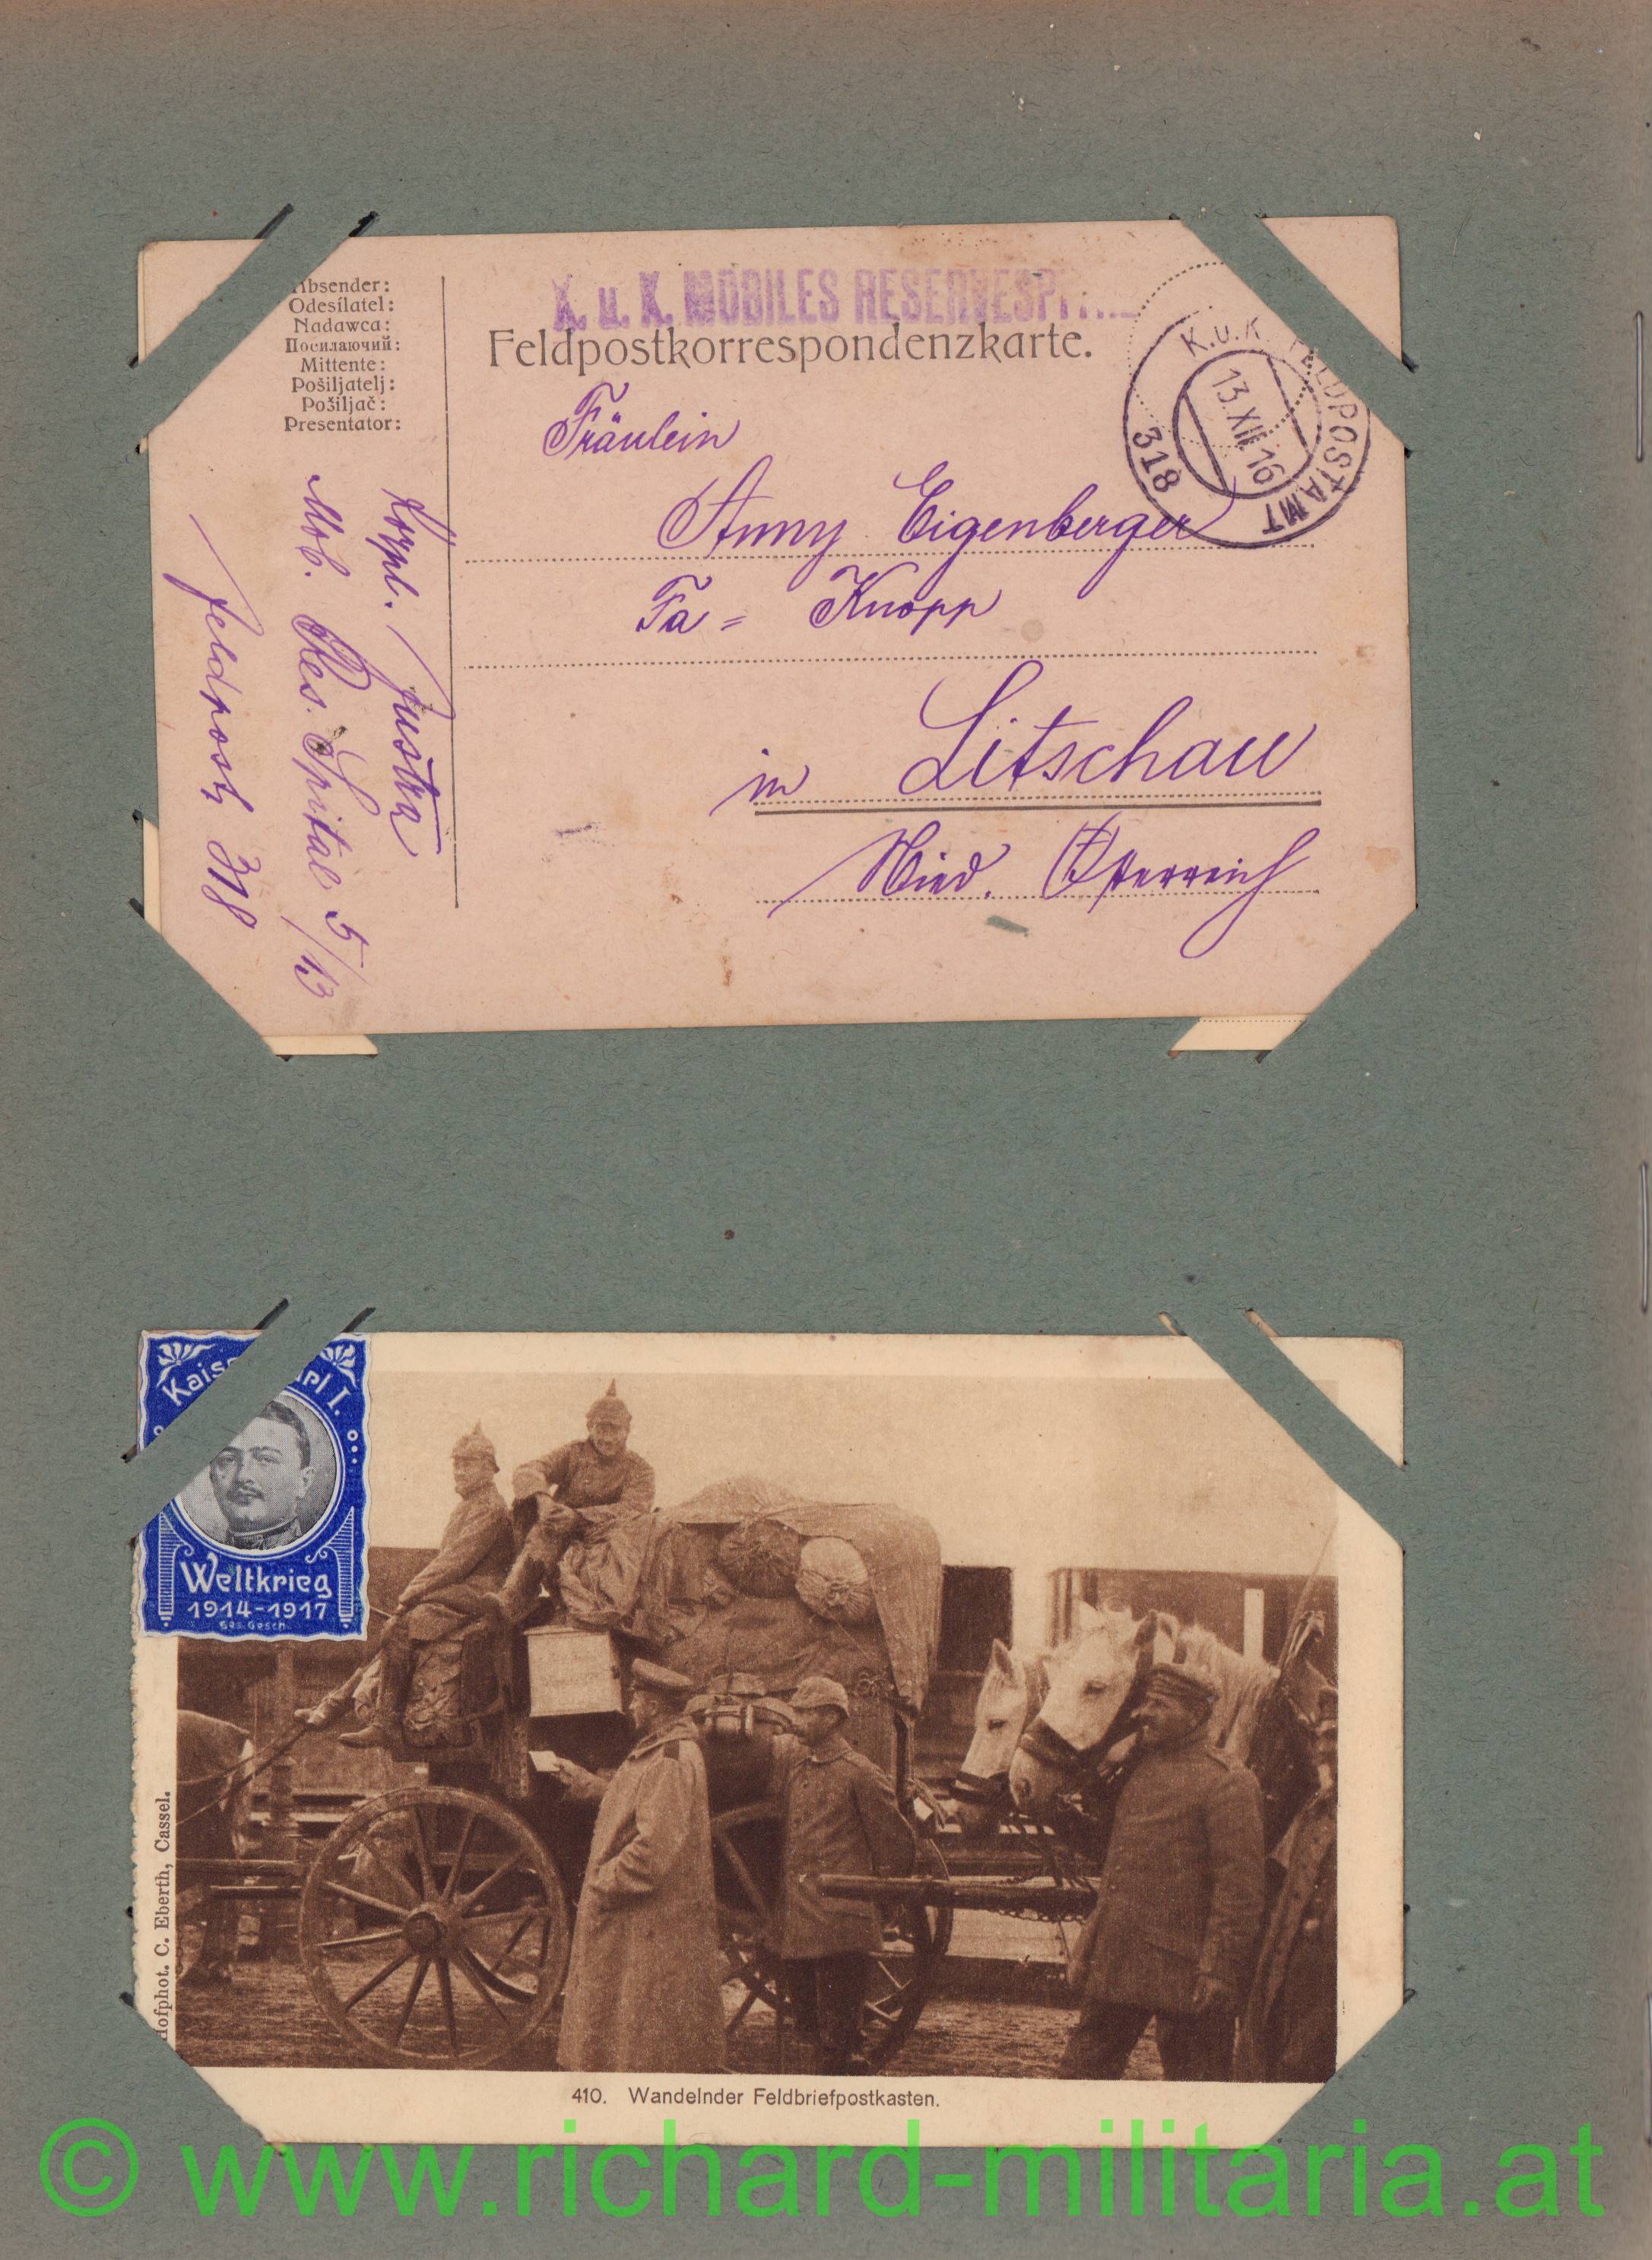 K. u. K. MOBILES
Absender:
Odesílatel:
Nadawca:
Посилаючий:
Mittente:
Pošiljatelj:
Požiljač:
Presentator:
Feldpostkorrespondenzkarte.
K.u.K. FELDPOSTAMT
13.XII.16
318
Fräulein
Anny Eigenberger
Fa = Knopp
in Litschau
Nied. Österreich
Korpl. Justra
Mob. Res. Spital 5/13
Feldpost 318
Weltkrieg
1914-1917
Ges. Gesch.
Hofphot. C. Eberth, Cassel.
410. Wandelnder Feldbriefpostkasten.
© www.richard-militaria.at